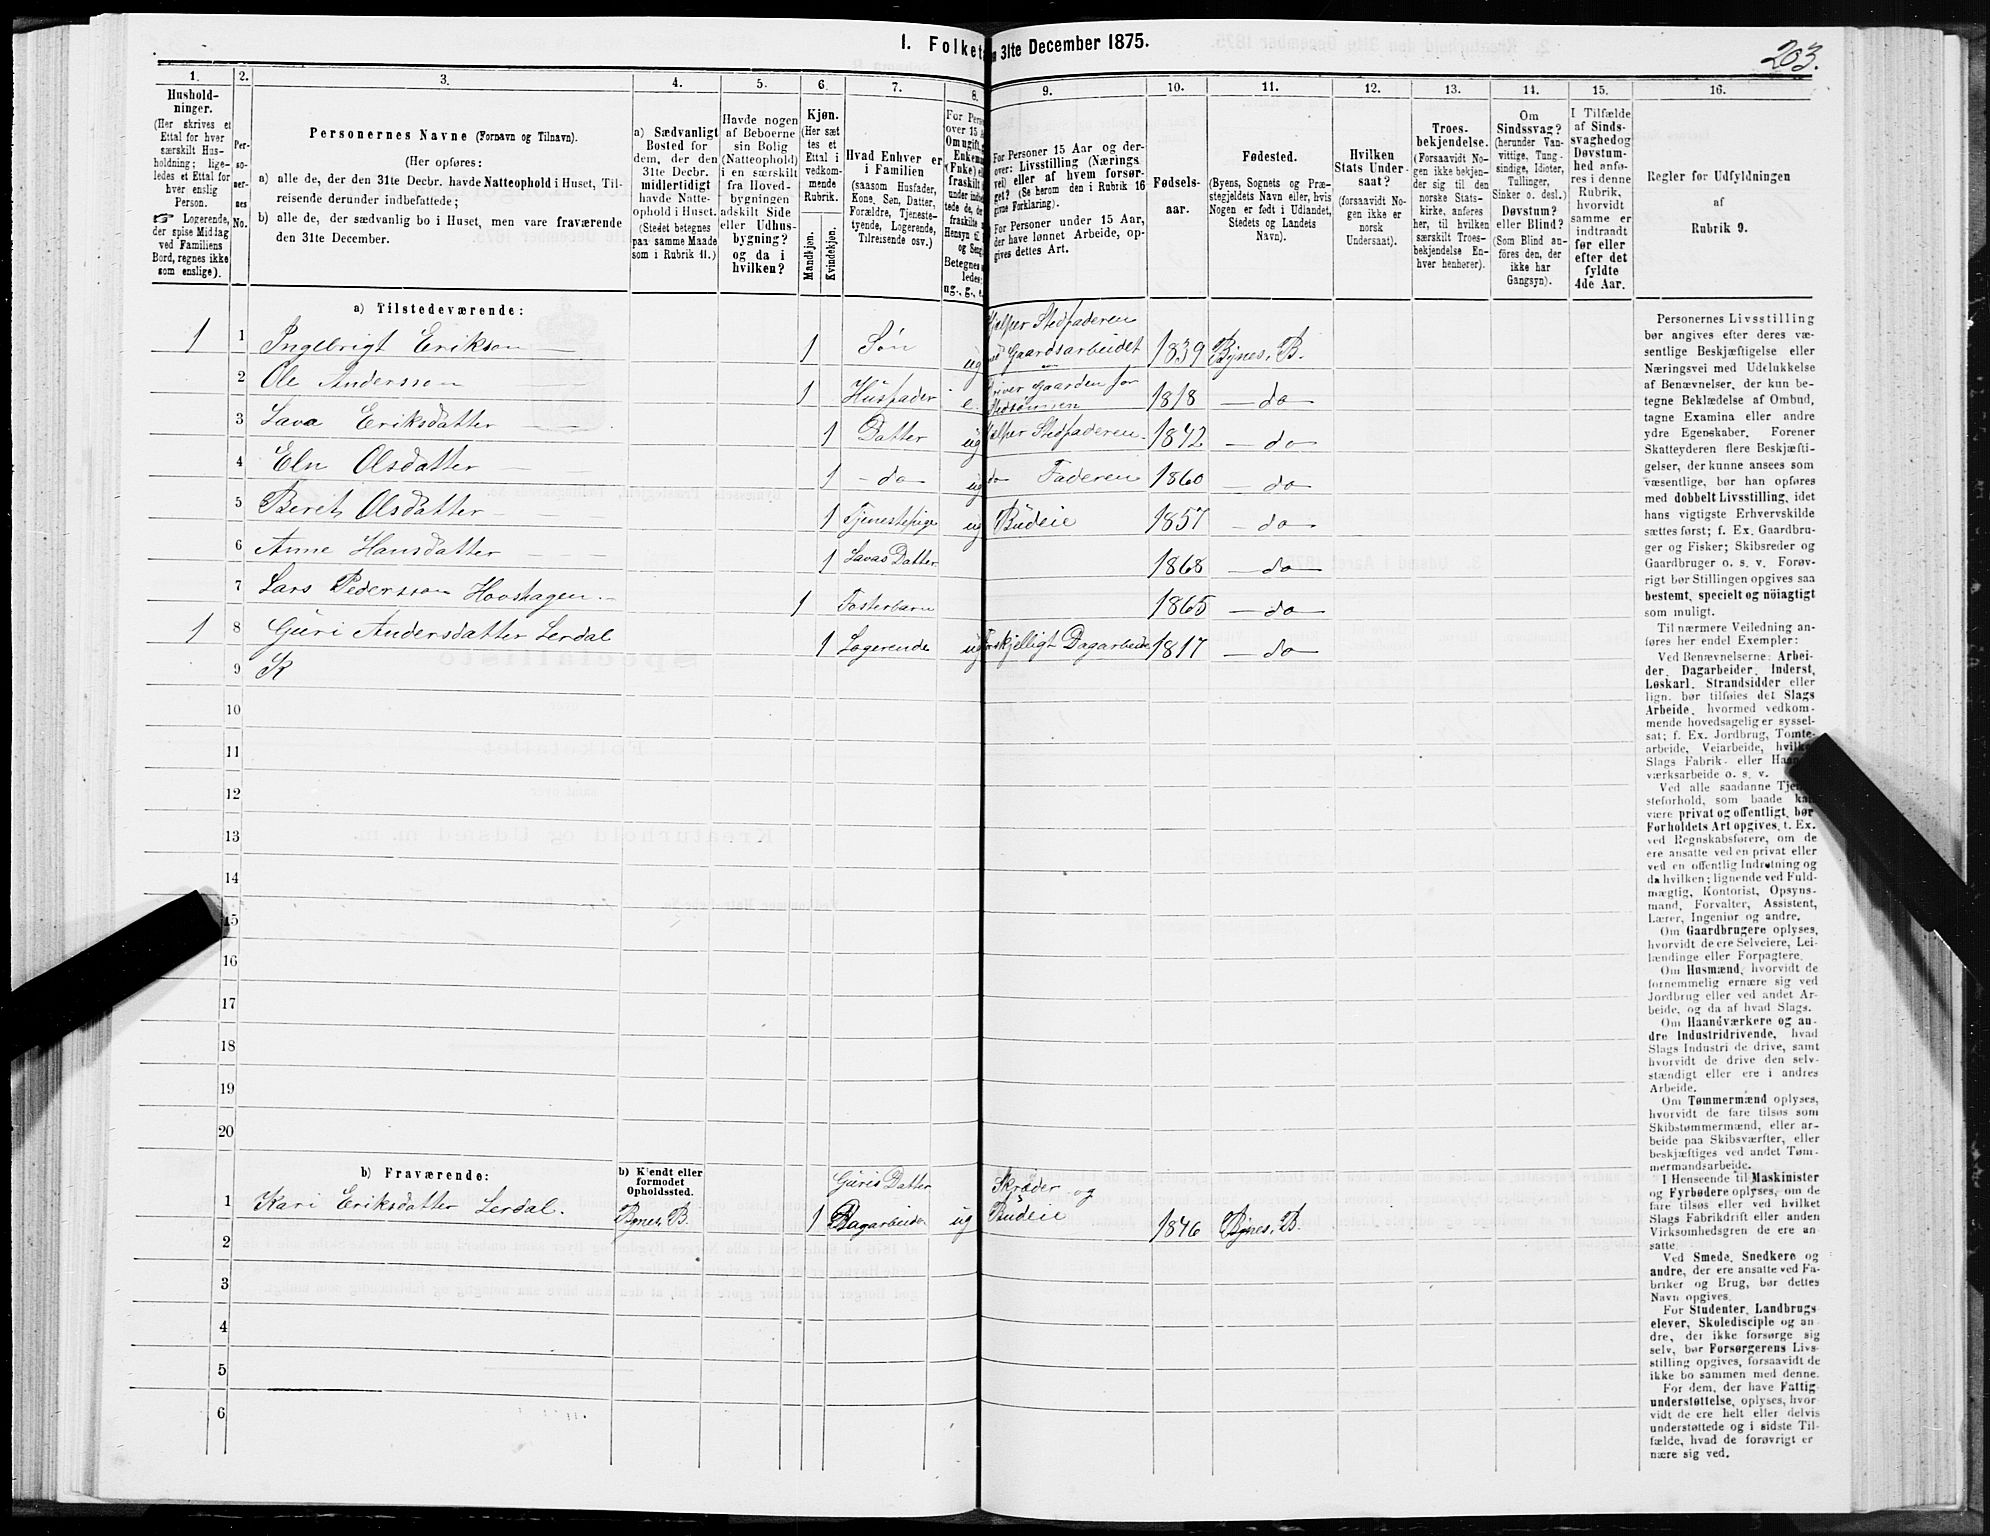 1. Folket
n 31te December 1875.
203.
1.
2.
3.
4.
5.
6.
7.
8.
9.
10.
11.
12.
13.
14.
15.
16.
Hushold-
ninger.
(Her skrives et
Ettal for hver
særskilt Hus-
holdning; lige-
ledes et Ettal for
hver enslig
Person.
☞ Logerende,
der spise Middag
ved Familiens
Bord, regnes ikke
som enslige).
Per-
so-
ner-
nes
No.
Personernes Navne (Fornavn og Tilnavn).
(Her opføres:
a) alle de, der den 31te Decbr. havde Natteophold i Huset, Til-
reisende derunder indbefattede;
b) alle de, der sædvanlig bo i Huset, men vare fraværende
den 31te December.
a) Sædvanligt
Bosted for
dem, der den
31te Decbr.
midlertidigt
havde Natte-
ophold i Huset.
(Stedet betegnes
paa samme Maade
som i Rubrik 11.)
Havde nogen
af Beboerne
sin Bolig
(Natteophold)
i en særskilt
fra Hoved-
bygningen
adskilt Side
eller Udhus-
bygning?
og da i
hvilken?
Kjøn.
(Her sæt
tes et
Ettal i
vedkom-
mende
Rubrik.
Mandkjøn.
Kvindekjøn.
Hvad Enhver er
i Familien
(saasom Husfader,
Kone, Søn, Datter,
Forældre, Tjeneste-
tyende, Logerende,
Tilreisende osv.)
For Perso
over 15 A
Om ugift, g
Enkem
(Enke) e
fraskilt
under indb
tede de, d
fraskilte
Hensyn ti
og Sen
Betegnes
ledes:
ug., g., e
For Personer 15 Aar og der-
over: Livsstilling (Nærings
vei) eller af hvem forsør-
get? (Se herom den i Rubrik 16
givne Forklaring).
For Personer under 15 Aar,
der have lønnet Arbeide, op-
gives dettes Art.
Fødsels-
aar.
Fødested.
(Byens, Sognets og Præ-
stegjeldets Navn eller, hvis
Nogen er født i Udlandet,
Stedets og Landets
Navn).
Hvilken
Stats Under-
saat?
(forsaavidt No-
gen ikke er
norsk
Undersaat).
Troes-
bekjendelse.
(Forsaavidt No-
gen ikke bekjen-
der sig til den
norske Stats-
kirke, anføres
her, til hvilken
særskilt Troes-
bekjendelse En-
hver henhører).
Om
Sindssvag?
(herunder Van-
vittige, Tung-
sindige, Idioter,
Tullinger,
Sinker o. desl.)
Døvstum?
eller Blind?
(Som Blind an-
føres den, der
ikke har
Gangsyn).
I Tilfælde
af Sinds-
svaghed og
Døvstum-
hed anfø-
res i denne
Rubrik,
hvorvidt
samme er
indtraadt
før eller
efter det
fyldte
4de Aar.
Regler for Udfyldningen
af
Rubrik 9.
a) Tilstedeværende:
1 1 Ingebrigt Erikson 1 Søn ug Hjelper Stedfaderen med Gaardsarbeidet 1839 Bynes, B.
2 Ole Anderssen 1 Husfader e. Driver Gaarden for Stedsønnen 1818 — do —
3 Lava Eriksdatter 1 Datter ug Hjelper Stedfaderen 1842 — do —
4 Eln Olsdatter 1 — do — ug do Faderen 1860 — do —
5 Beret Olsdatter 1 Tjenestepige ug Budeie 1857 — do —
6 Anne Hansdatter 1 Lavas Datter 1868 — do —
7 Lars Pederssen Hovshagen 1 Fosterbarn 1865 — do —
1 8 Guri Andersdatter Lerdal 1 Logerende ug Forskjelligt Dagarbeide 1817 — do —
9 K
10
11
12
13
14
15
16
17
18
19
20
b) Fraværende:
b) Kjendt eller
formodet
Opholdssted.
1 Kari Eriksdatter Lerdal. Bynes, B. 1 Guris Datter Dagarbeider ug Skræder og Budeie 1846 Bynes, B.
2
3
4
5
6
Personernes Livsstilling
bør angives efter deres væ-
sentlige Beskjæftigelse eller
Næringsvei med Udelukkelse
af Benævnelser, der kun be-
tegne Beklædelse af Ombud,
tagne Examina eller andre
ydre Egenskaber. Forener
Skatteyderen flere Beskjæfti-
gelser, der kunne ansees som
væsentlige, bør han opføres
med dobbelt Livsstilling, idet
hans vigtigste Erhvervskilde
sættes først; f. Ex. Gaardbru-
ger og Fisker; Skibsreder og
Gaardbruger o. s. v. Forøv-
rigt bør Stillingen opgives saa
bestemt, specielt og nøiagtigt
som muligt.
Til nærmere Veiledning an-
føres her endel Exempler:
Ved Benævnelserne: Arbei-
der, Dagarbeider, Inderst,
Løskarl, Strandsidder eller
lign. bør tilføies det Slags
Arbeide, hvormed vedkom-
mende hovedsagelig er syssel-
sat; f. Ex. Jordbrug, Tomte-
arbeide, Veiarbeide, hvilket
Slags Fabrik- eller Haand-
værksarbeide o. s. v.
Ved alle saadanne Tjene-
steforhold, som baade kan
være privat og offentligt, bør
Forholdets Art opgives, t. Ex.
ved Regnskabsførere, om de
ere ansatte ved en privat eller
ved en offentlig Indretning og
da hvilken; lignende ved Fuld-
mægtig, Kontorist, Opsyns-
mand, Forvalter, Assistent,
Lærer, Ingeniør og andre.
Om Gaardbrugere oplyses,
hvorvidt de ere Selveiere, Lei-
lændinge eller Forpagtere.
Om Husmænd, hvorvidt de
fornemmelig ernære sig ved
Jordbrug eller ved andet Ar-
beide, og da af hvad Slags.
Om Haandværkere og an-
dre Industridrivende, hvad
Slags Industri de drive, samt
hvorvidt de drive den selv-
stændigt eller ere i andres
Arbeide.
Om Tømmermænd oplyses,
hvorvidt de fare tilsøs som
Skibstømmermænd, eller ar-
beide paa Skibsværfter, eller
beskjæftiges ved andet Tøm-
mermandsarbeide.
I Henseende til Maskinister
og Fyrbødere oplyses, om de
fare tilsøs eller ved hvilket
Slags Fabrikdrift eller anden
Virksomhedsgren de ere an-
satte.
Ved Smede, Snedkere og
andre, der ere ansatte ved Fa-
briker og Brug, bør dettes
Navn opgives.
For Studenter, Landbrugs-
elever, Skoledisciple og an-
dre, der ikke forsørge sig
selv, bør Forsørgerens Livs-
stilling opgives, forsaavidt de
ikke bo sammen med denne.
For dem, der have Fattig-
understøttelse, oplyses, hvor-
vidt de ere helt eller delvis
understøttede og i sidste Til-
fælde, hvad de forøvrigt er
nære sig ved.